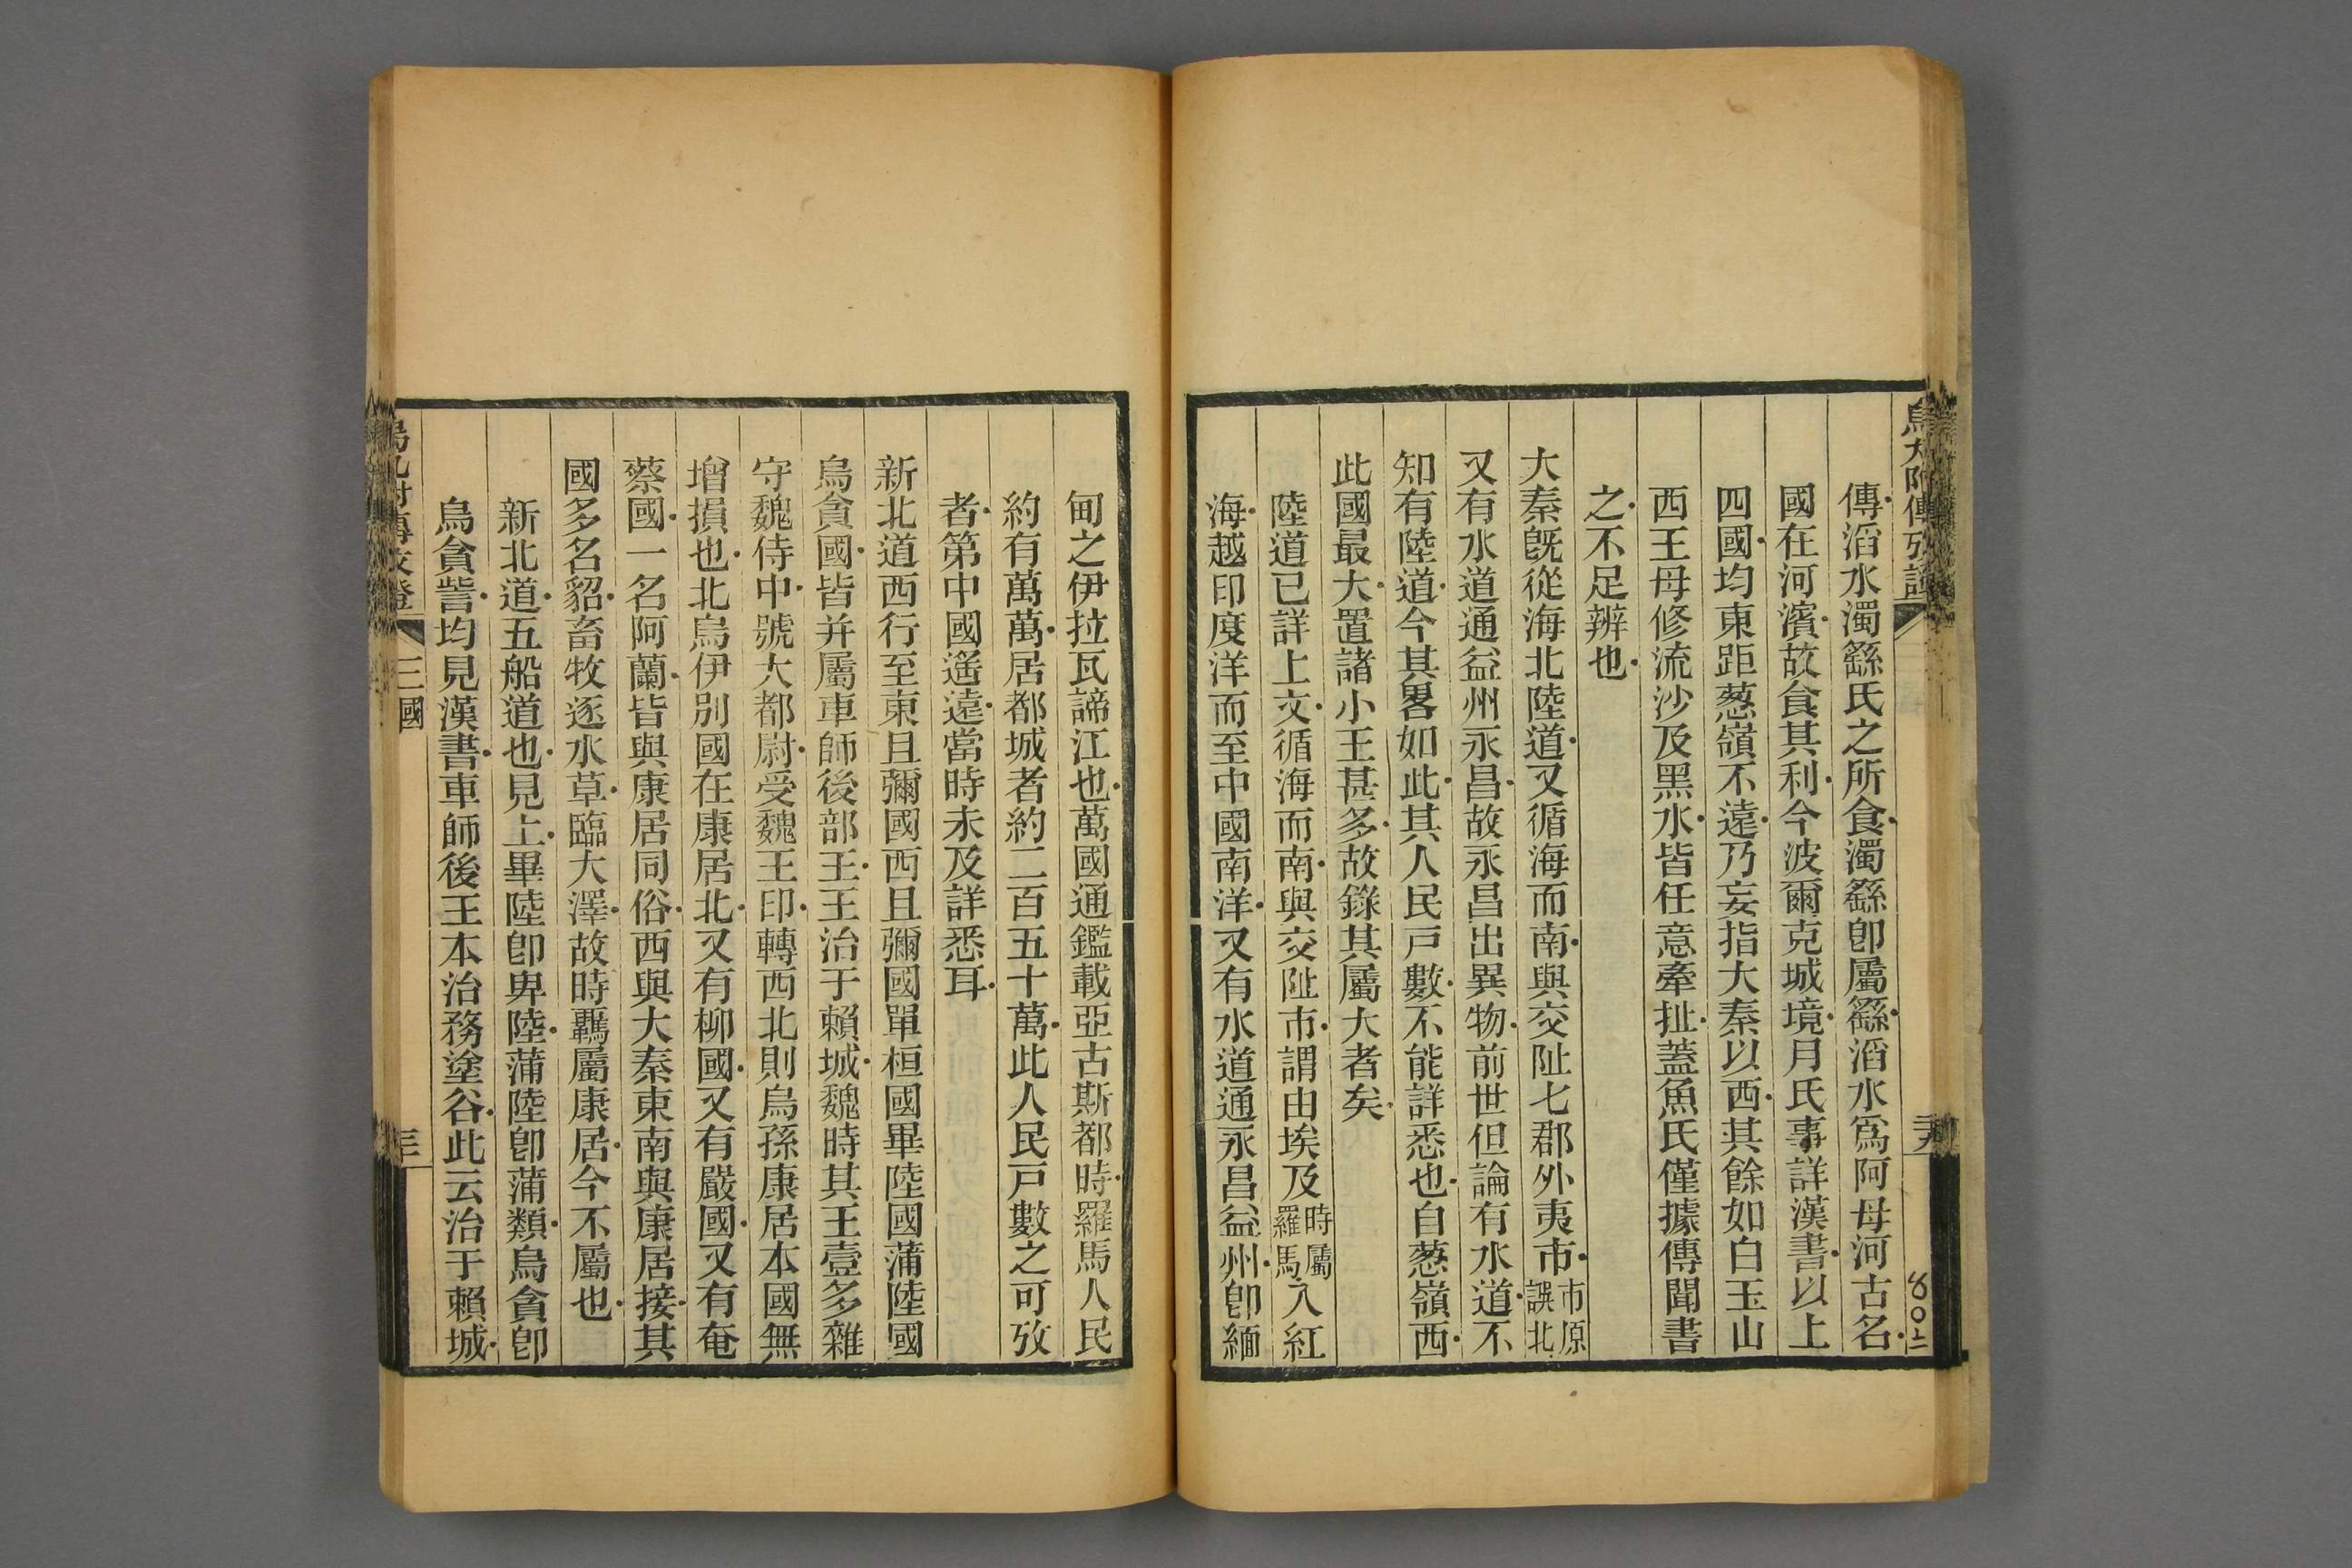 傳滔水濁繇氏之所食濁繇卽屬繇滔水爲阿母河古名
國在河濱故食其利今波爾克城境月氏事詳漢書以上
四國均東距葱嶺不遠乃妄指大秦以西其餘如白玉山
西王母修流沙及黑水皆任意牽扯蓋魚氏僅據傳聞書
之不足辨也
大秦旣從海北陸道又循海而南與交阯七郡外夷市市原誤北
又有水道通益州永昌故永昌出異物前世但論有水道不
知有陸道今其畧如此其人民戸數不能詳悉也自葱嶺西
此國最大置諸小王甚多故錄其屬大者矣
陸道已詳上文循海而南與交阯市謂由埃及時屬羅馬入紅
海越印度洋而至中國南洋又有水道通永昌益州卽緬
甸之伊拉瓦諦江也萬國通鑑載亞古斯都時羅馬人民
約有萬萬居都城者約二百五十萬此人民戸數之可攷
者第中國遙遠當時未及詳悉耳
新北道西行至東且彌國西且彌國單桓國畢陸國蒲陸國
烏貪國皆并屬車師後部王王治于賴城魏時其王壹多雜
守魏侍中號大都尉受魏王印轉西北則烏孫康居本國無
增損也北烏伊別國在康居北又有柳國又有嚴國又有奄
蔡國一名阿蘭皆與康居同俗西與大秦東南與康居接其
國多名貂畜牧逐水草臨大澤故時羈屬康居今不屬也
新北道五船道也見上畢陸卽卑陸蒲陸卽蒲類烏貪卽
烏貪訾均見漢書車師後王本治務塗谷此云治于賴城
三國
三十